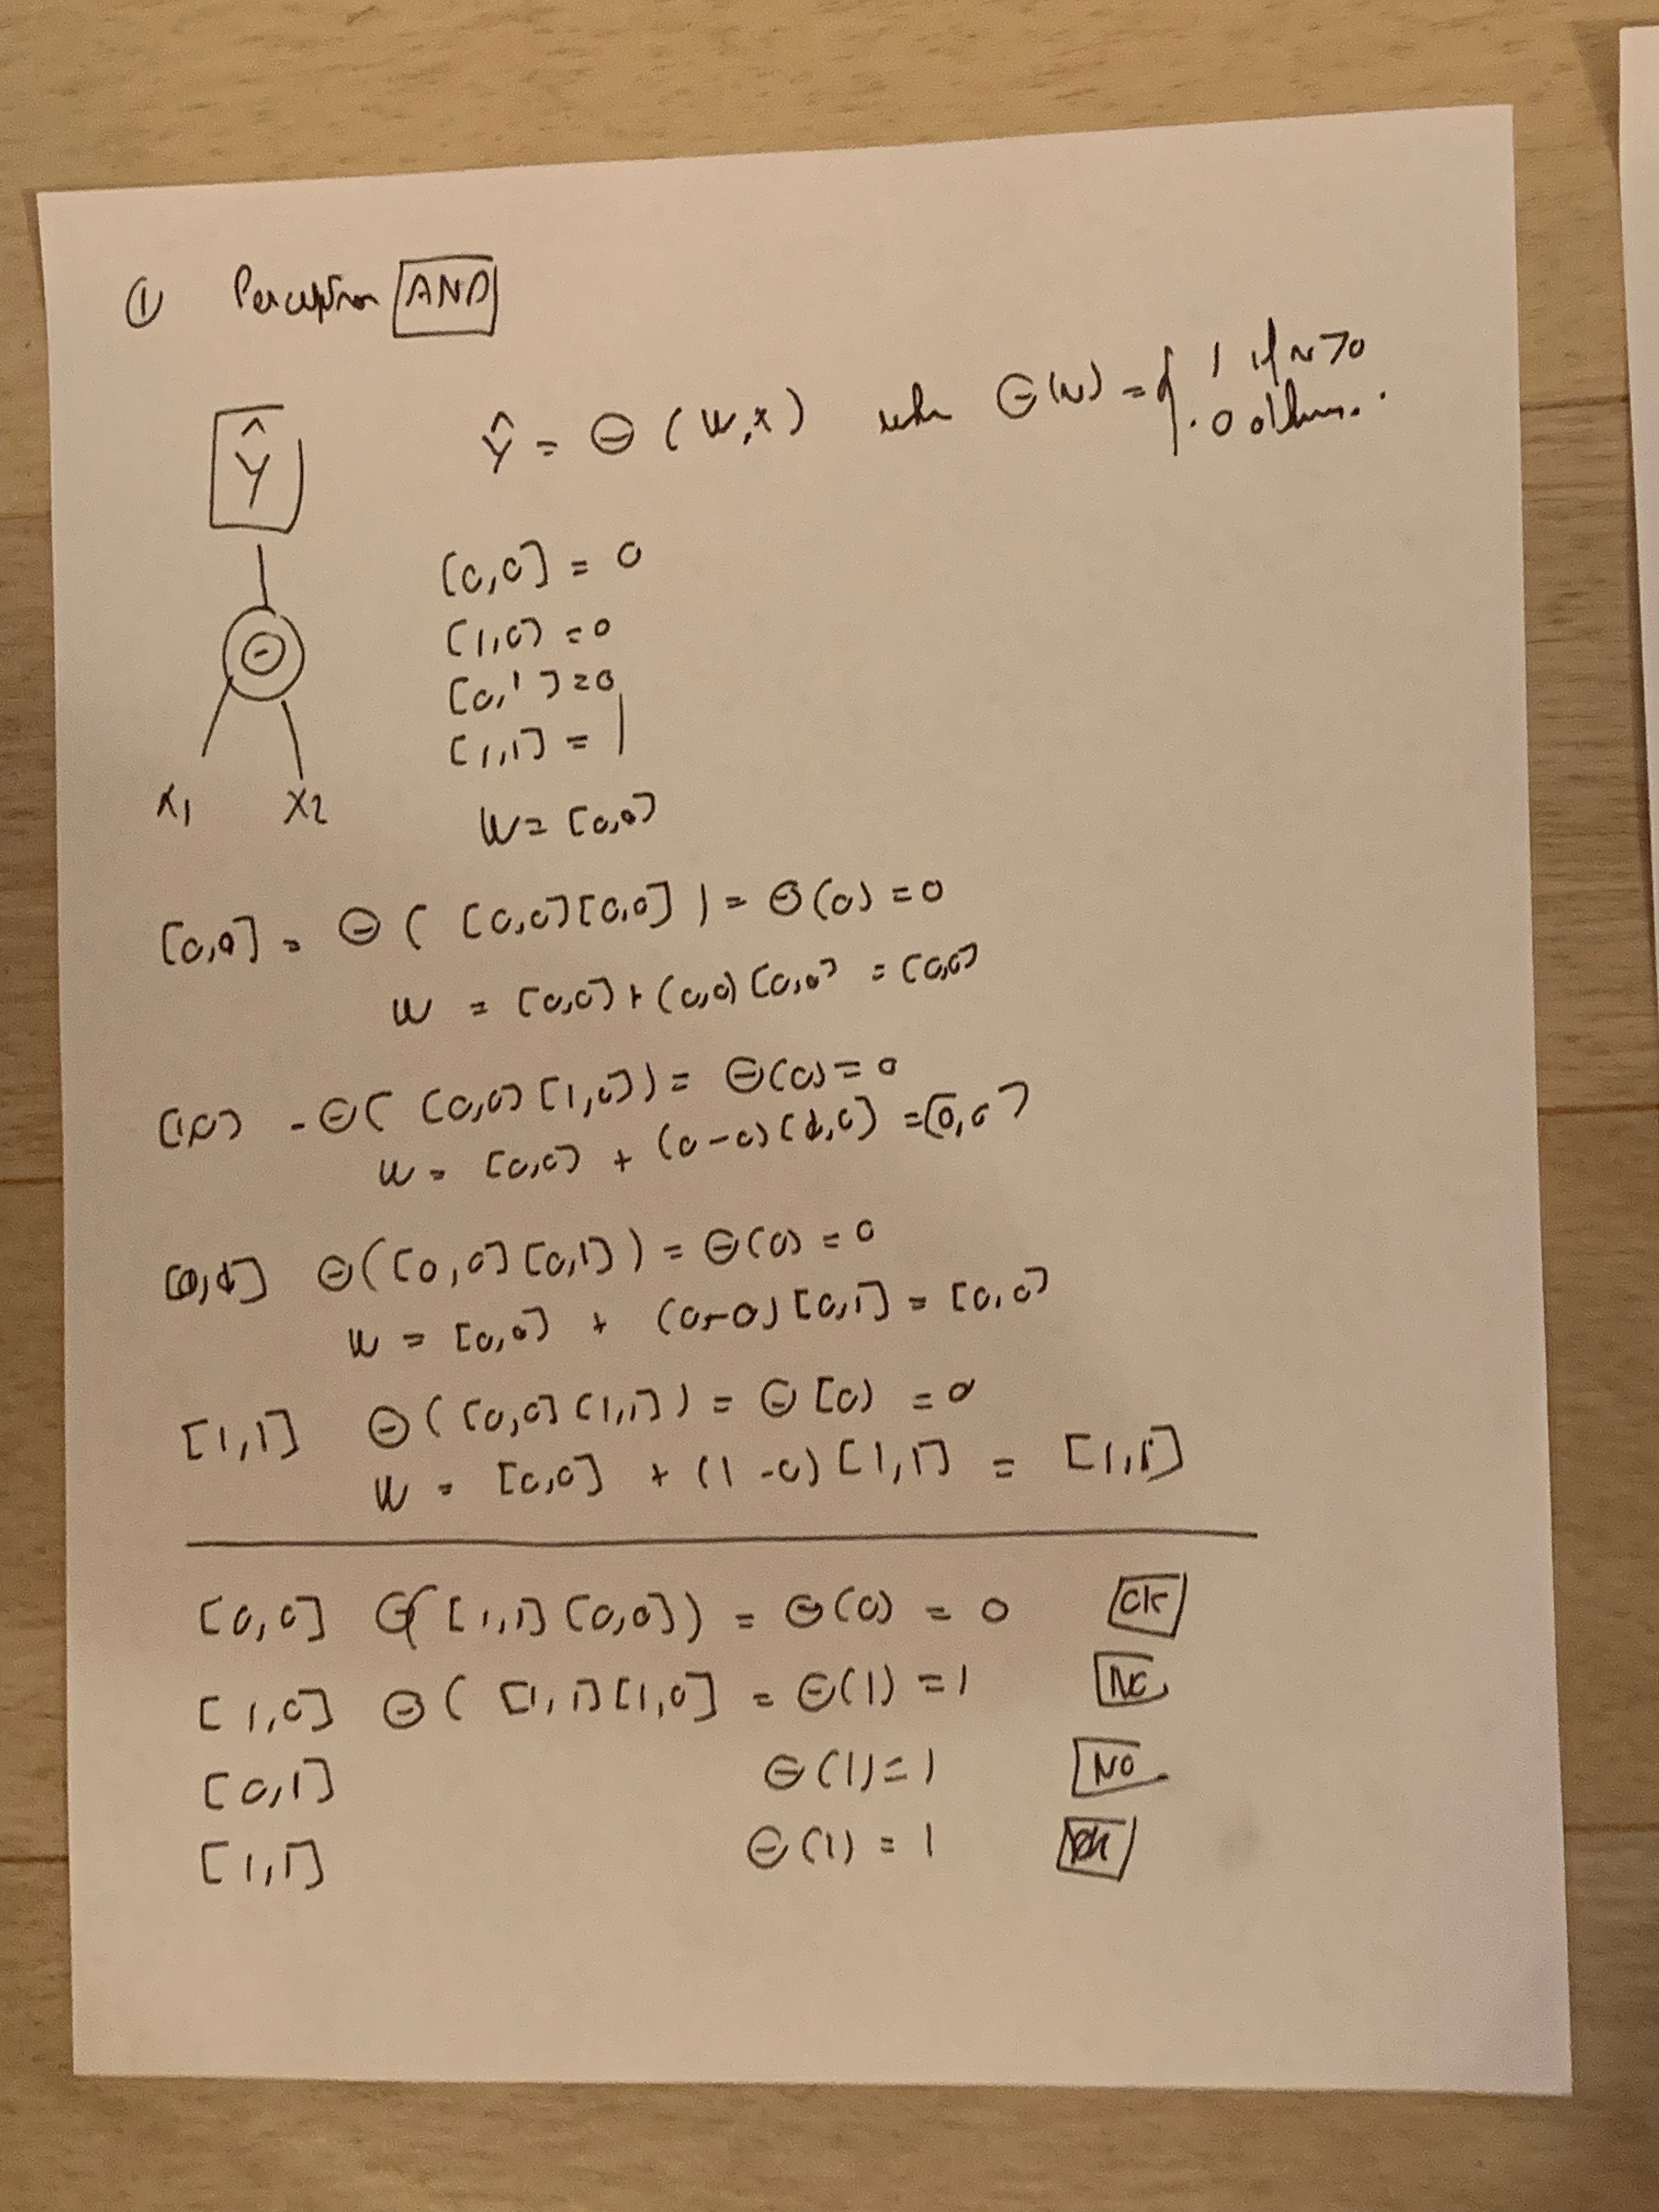 ① Perceptron AND
Ŷ
ŷ = Θ(W,x) when Θ(N) = { 1 if N>0
0 otherwise.
[0,0] = 0
[1,0] = 0
[0,1] = 0
[1,1] = 1
X1 X2
W = [0,0]
[0,0] = Θ([0,0][0,0]) = Θ(0) = 0
W = [0,0] + (0,0)[0,0] = [0,0]
[1,0] - Θ([0,0][1,0]) = Θ(0) = 0
W = [0,0] + (0-0)[1,0] = [0,0]
[0,1] Θ([0,0][0,1]) = Θ(0) = 0
W = [0,0] + (0-0)[0,1] = [0,0]
[1,1] Θ([0,0][1,1]) = Θ[0) = 0
W = [0,0] + (1-0)[1,1] = [1,1]
[0,0] Θ([1,1][0,0]) = Θ(0) = 0 OK
[1,0] Θ([1,1][1,0] = Θ(1) = 1 NO
[0,1] Θ(1) = 1 NO
[1,1] Θ(1) = 1 OK